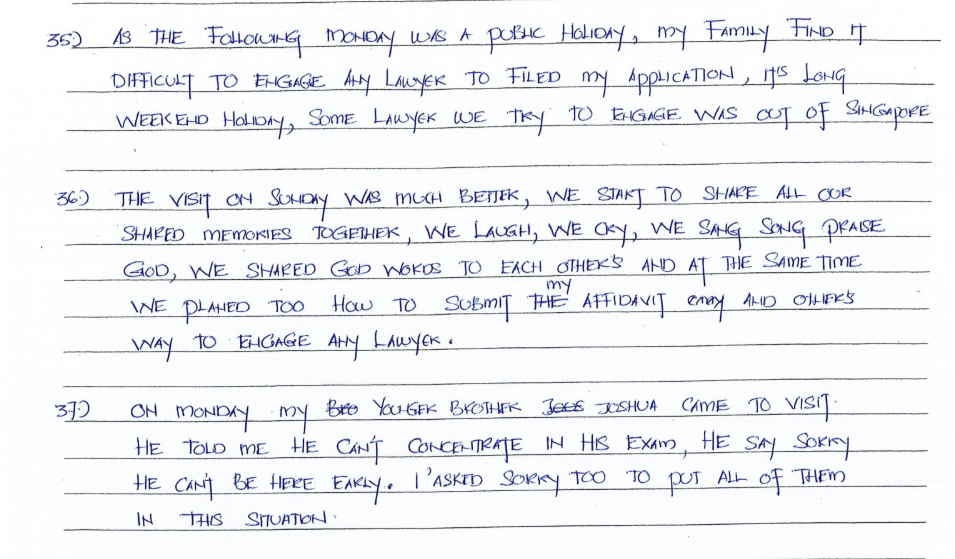 35.) AS THE FOLLOWING MONDAY WAS A PUBLIC HOLIDAY, MY FAMILY FIND IT
DIFFICULT TO ENGAGE ANY LAWYER TO FILED MY APPLICATION, IT'S LONG
WEEKEND HOLIDAY, SOME LAWYER WE TRY TO ENGAGE WAS OUT OF SINGAPORE
36.) THE VISIT ON SUNDAY WAS MUCH BETTER, WE START TO SHARE ALL OUR
SHARED MEMORIES TOGETHER, WE LAUGH, WE CRY, WE SANG SONG PRAISE
GOD, WE SHARED GOD WORDS TO EACH OTHER'S AND AT THE SAME TIME
my
WE PLANED TOO HOW TO SUBMIT THE AFFIDAVIT AND OTHER'S
WAY TO ENGAGE ANY LAWYER.
37.) ON MONDAY MY BRO YOUNGER BROTHER JOSHUA CAME TO VISIT.
HE TOLD ME HE CAN'T CONCENTRATE IN HIS EXAM, HE SAY SORRY
HE CAN'T BE HERE EARLY. I'ASKED SORRY TOO TO PUT ALL OF THEM
IN THIS SITUATION.